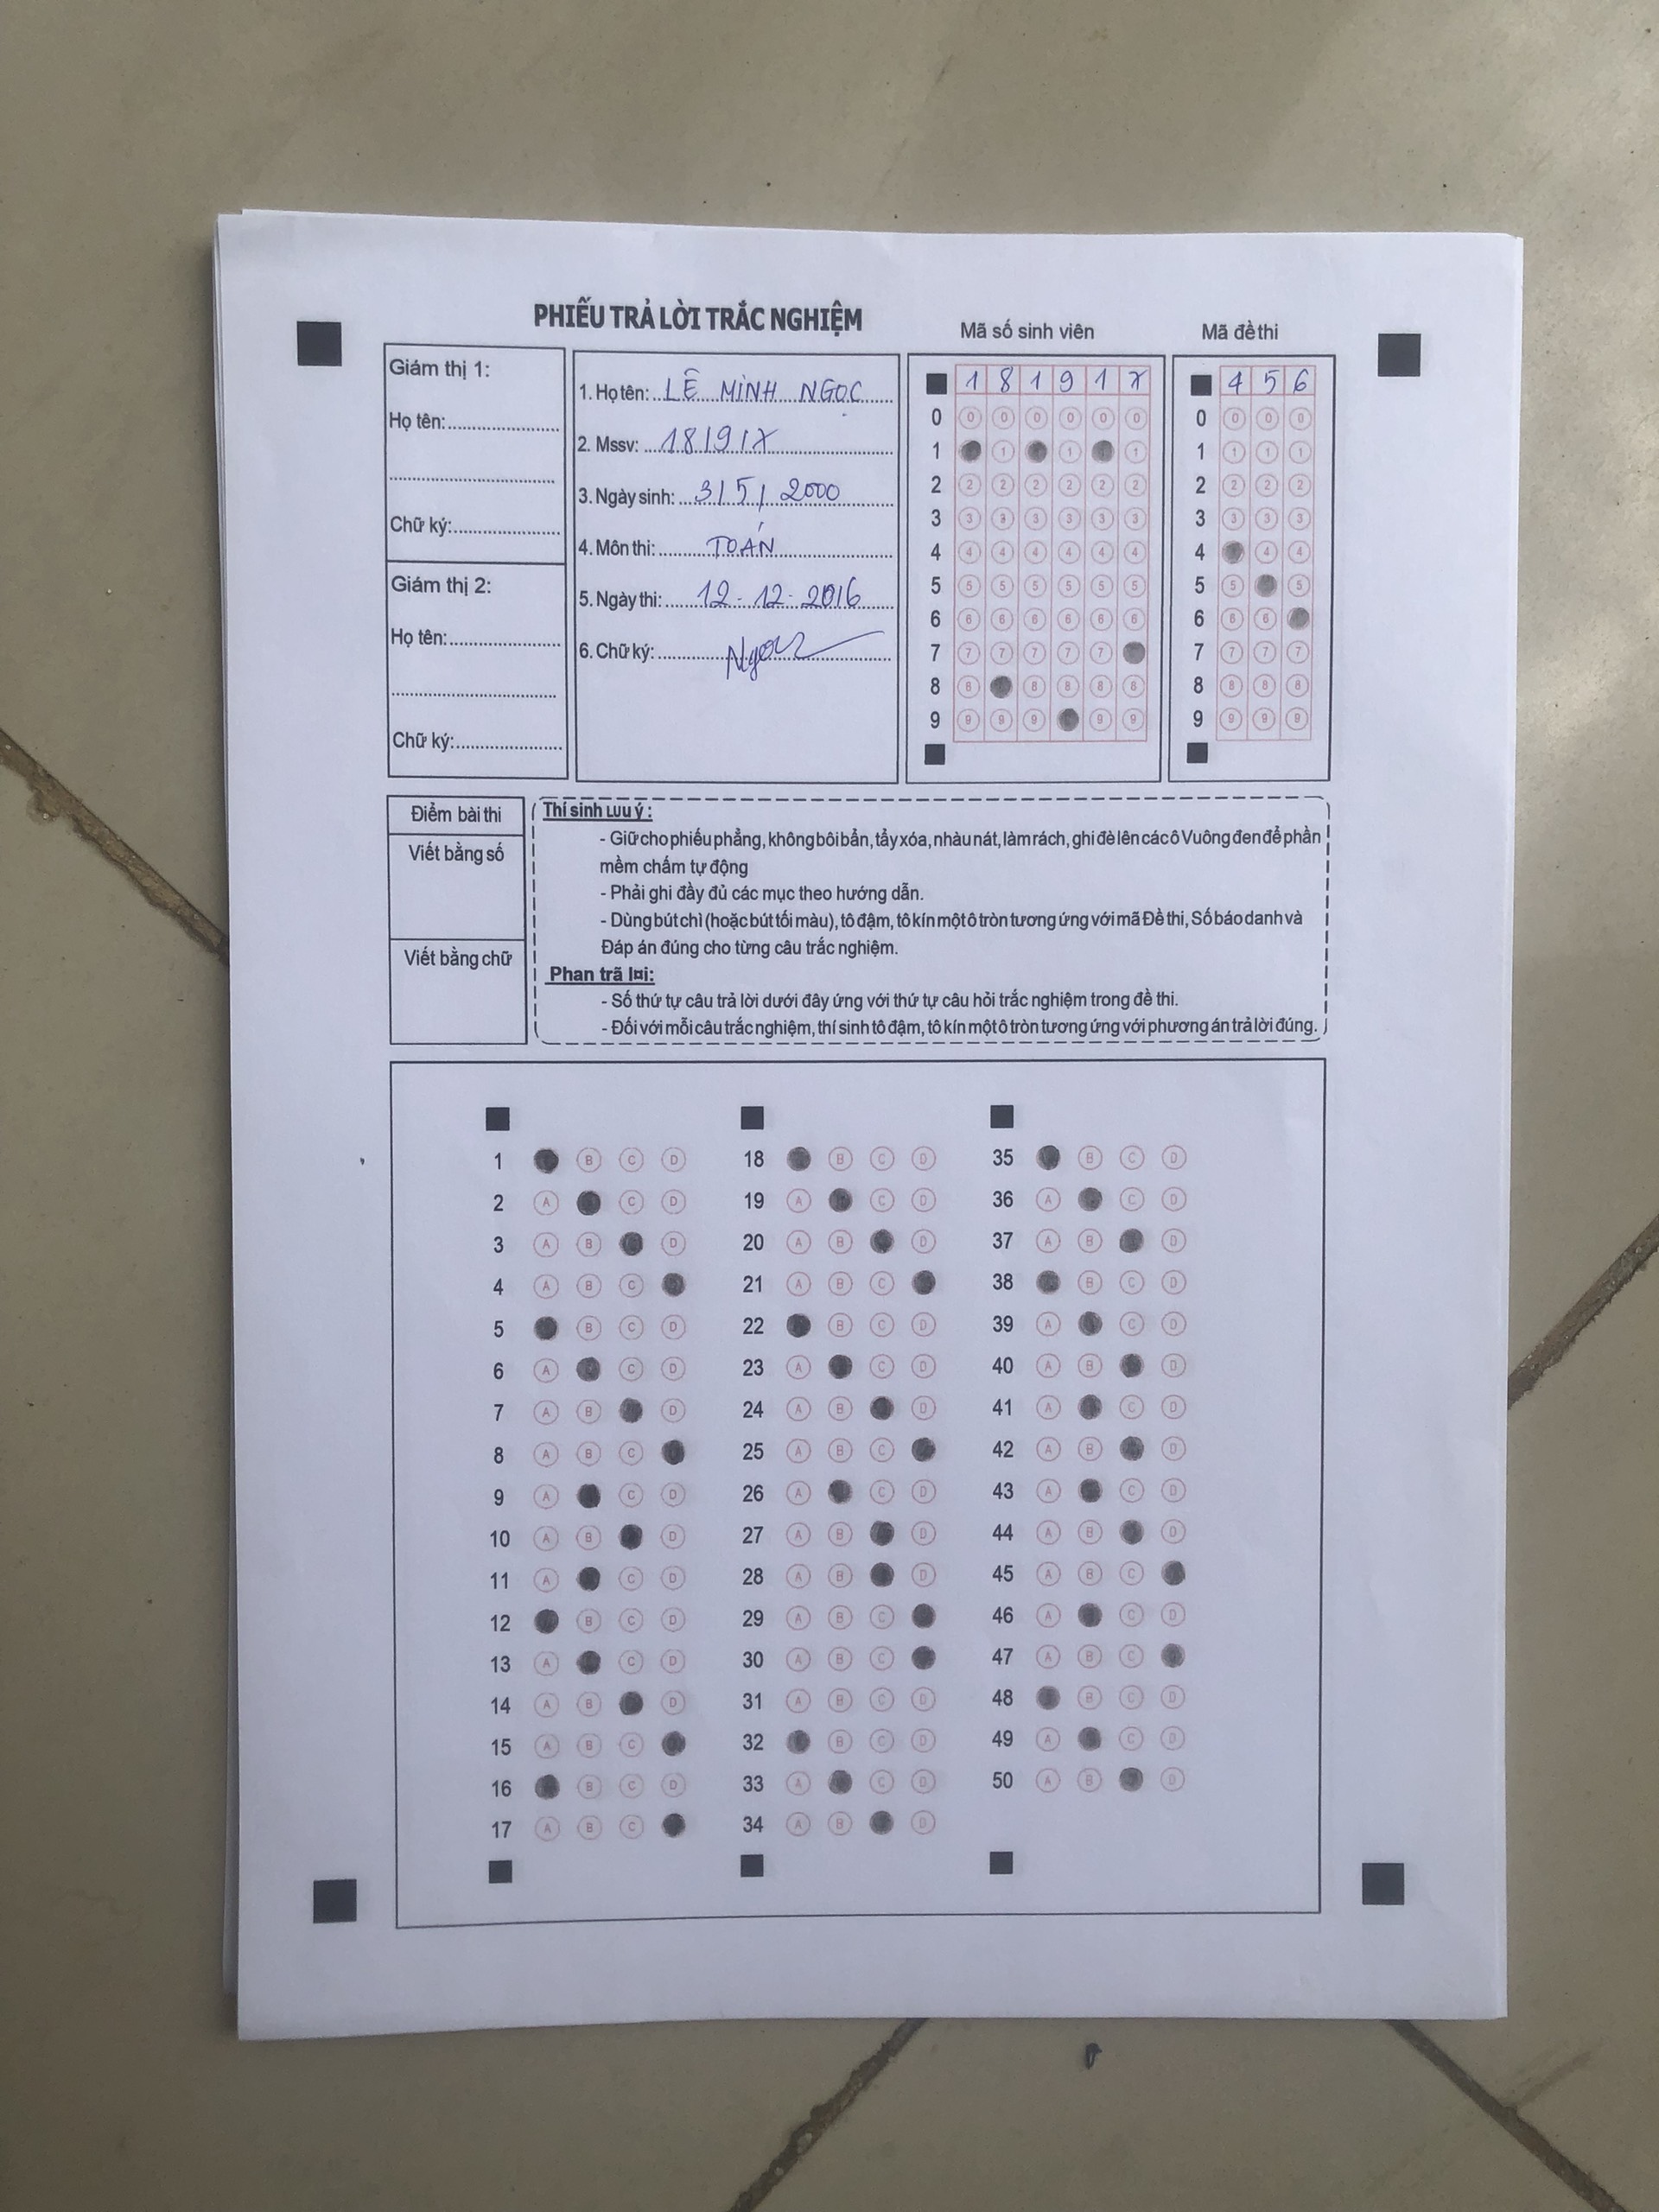 PHIẾU TRẢ LỜI TRẮC NGHIỆM
Mã số sinh viên
Mã đề thi
Giám thị 1:
Họ tên:
Chữ ký:
Giám thị 2:
Họ tên:
Chữ ký:
1. Họ tên: LÊ MINH NGỌC
2. Mssv: 181917
3. Ngày sinh: 3/5/2000
4. Môn thi: TOÁN
5. Ngày thi: 12-12-2016
6. Chữ ký: Ngọc
1 8 1 9 1 7
0 0 0 0 0 0 0
1 1 1 1
2 2 2 2 2 2 2
3 3 3 3 3 3 3
4 4 4 4 4 4 4
5 5 5 5 5 5 5
6 6 6 6 6 6 6
7 7 7 7 7 7
8 8 8 8 8 8
9 9 9 9 9 9
4 5 6
0 0 0 0
1 1 1 1
2 2 2 2
3 3 3 3
4 4 4
5 5 5
6 6 6
7 7 7 7
8 8 8 8
9 9 9 9
Điểm bài thi
Viết bằng số
Viết bằng chữ
Thí sinh Lưu ý :
- Giữ cho phiếu phẳng, không bôi bẩn, tẩy xóa, nhàu nát, làm rách, ghi đè lên các ô Vuông đen để phần
mềm chấm tự động
- Phải ghi đầy đủ các mục theo hướng dẫn.
- Dùng bút chì (hoặc bút tối màu), tô đậm, tô kín một ô tròn tương ứng với mã Đề thi, Số báo danh và
Đáp án đúng cho từng câu trắc nghiệm.
Phan trã l¤i:
- Số thứ tự câu trả lời dưới đây ứng với thứ tự câu hỏi trắc nghiệm trong đề thi.
- Đối với mỗi câu trắc nghiệm, thí sinh tô đậm, tô kín một ô tròn tương ứng với phương án trả lời đúng.
1 B C D
2 A C D
3 A B D
4 A B C
5 B C D
6 A C D
7 A B D
8 A B C
9 A C D
10 A B D
11 A C D
12 B C D
13 A C D
14 A B D
15 A B C
16 B C D
17 A B C
18 B C D
19 A C D
20 A B D
21 A B C
22 B C D
23 A C D
24 A B D
25 A B C
26 A C D
27 A B D
28 A B D
29 A B C
30 A B C
31 A B C D
32 B C D
33 A C D
34 A B D
35 B C D
36 A C D
37 A B D
38 B C D
39 A C D
40 A B D
41 A C D
42 A B D
43 A C D
44 A B D
45 A B C
46 A C D
47 A B C
48 B C D
49 A C D
50 A B D